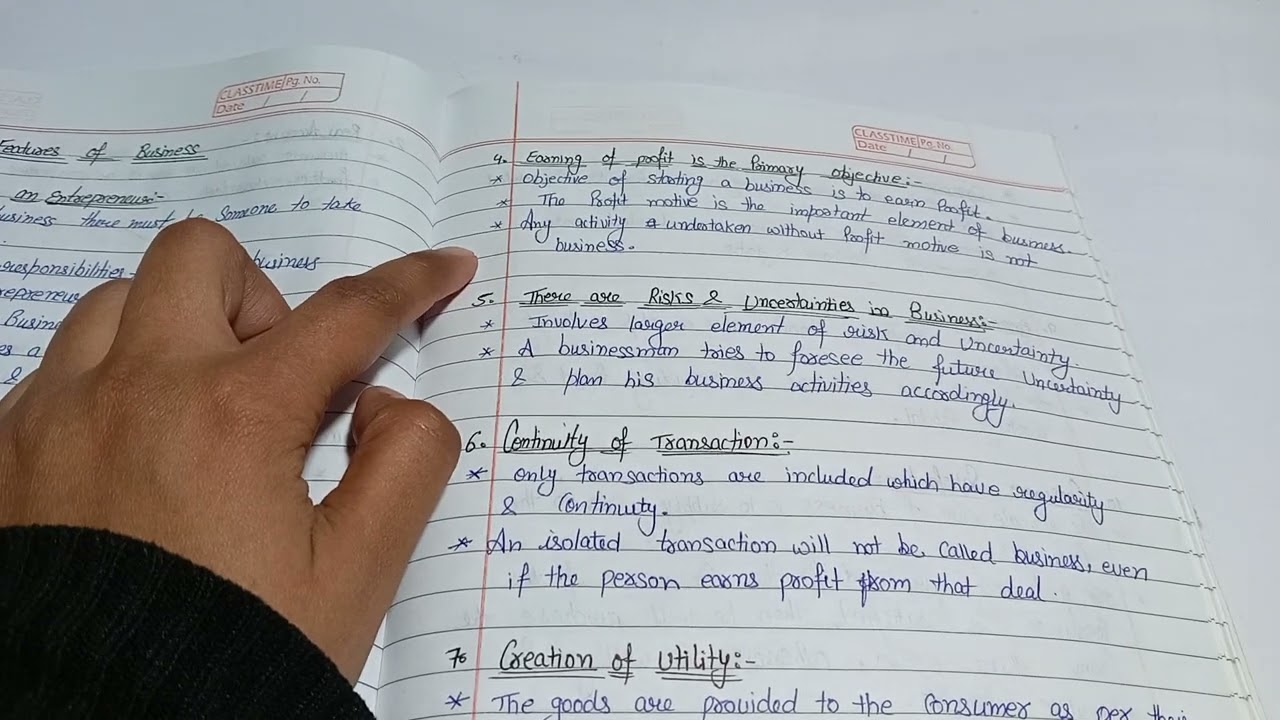 CLASSTIME Pg. No.
Date / /
Features of Business
an Entrepreneur:-
business there must be someone to take
responsibilities-
business
Busin
&
CLASSTIME Pg. No.
Date / /
4. Earning of profit is the Primary objective:-
* Objective of starting a business is to earn Profit.
* The Profit motive is the important element of business.
* Any activity undertaken without Profit motive is not
business.
5. There are Risks & Uncertainties in Business:-
* Involves larger element of risk and Uncertainty.
* A businessman tries to foresee the future Uncertainty
& plan his business activities accordingly.
6. Continuity of Transaction:-
* only transactions are included which have regularity
& Continuity.
* An isolated transaction will not be called business, even
if the person earns profit from that deal.
7. Creation of Utility:-
* The goods are provided to the Consumer as per their